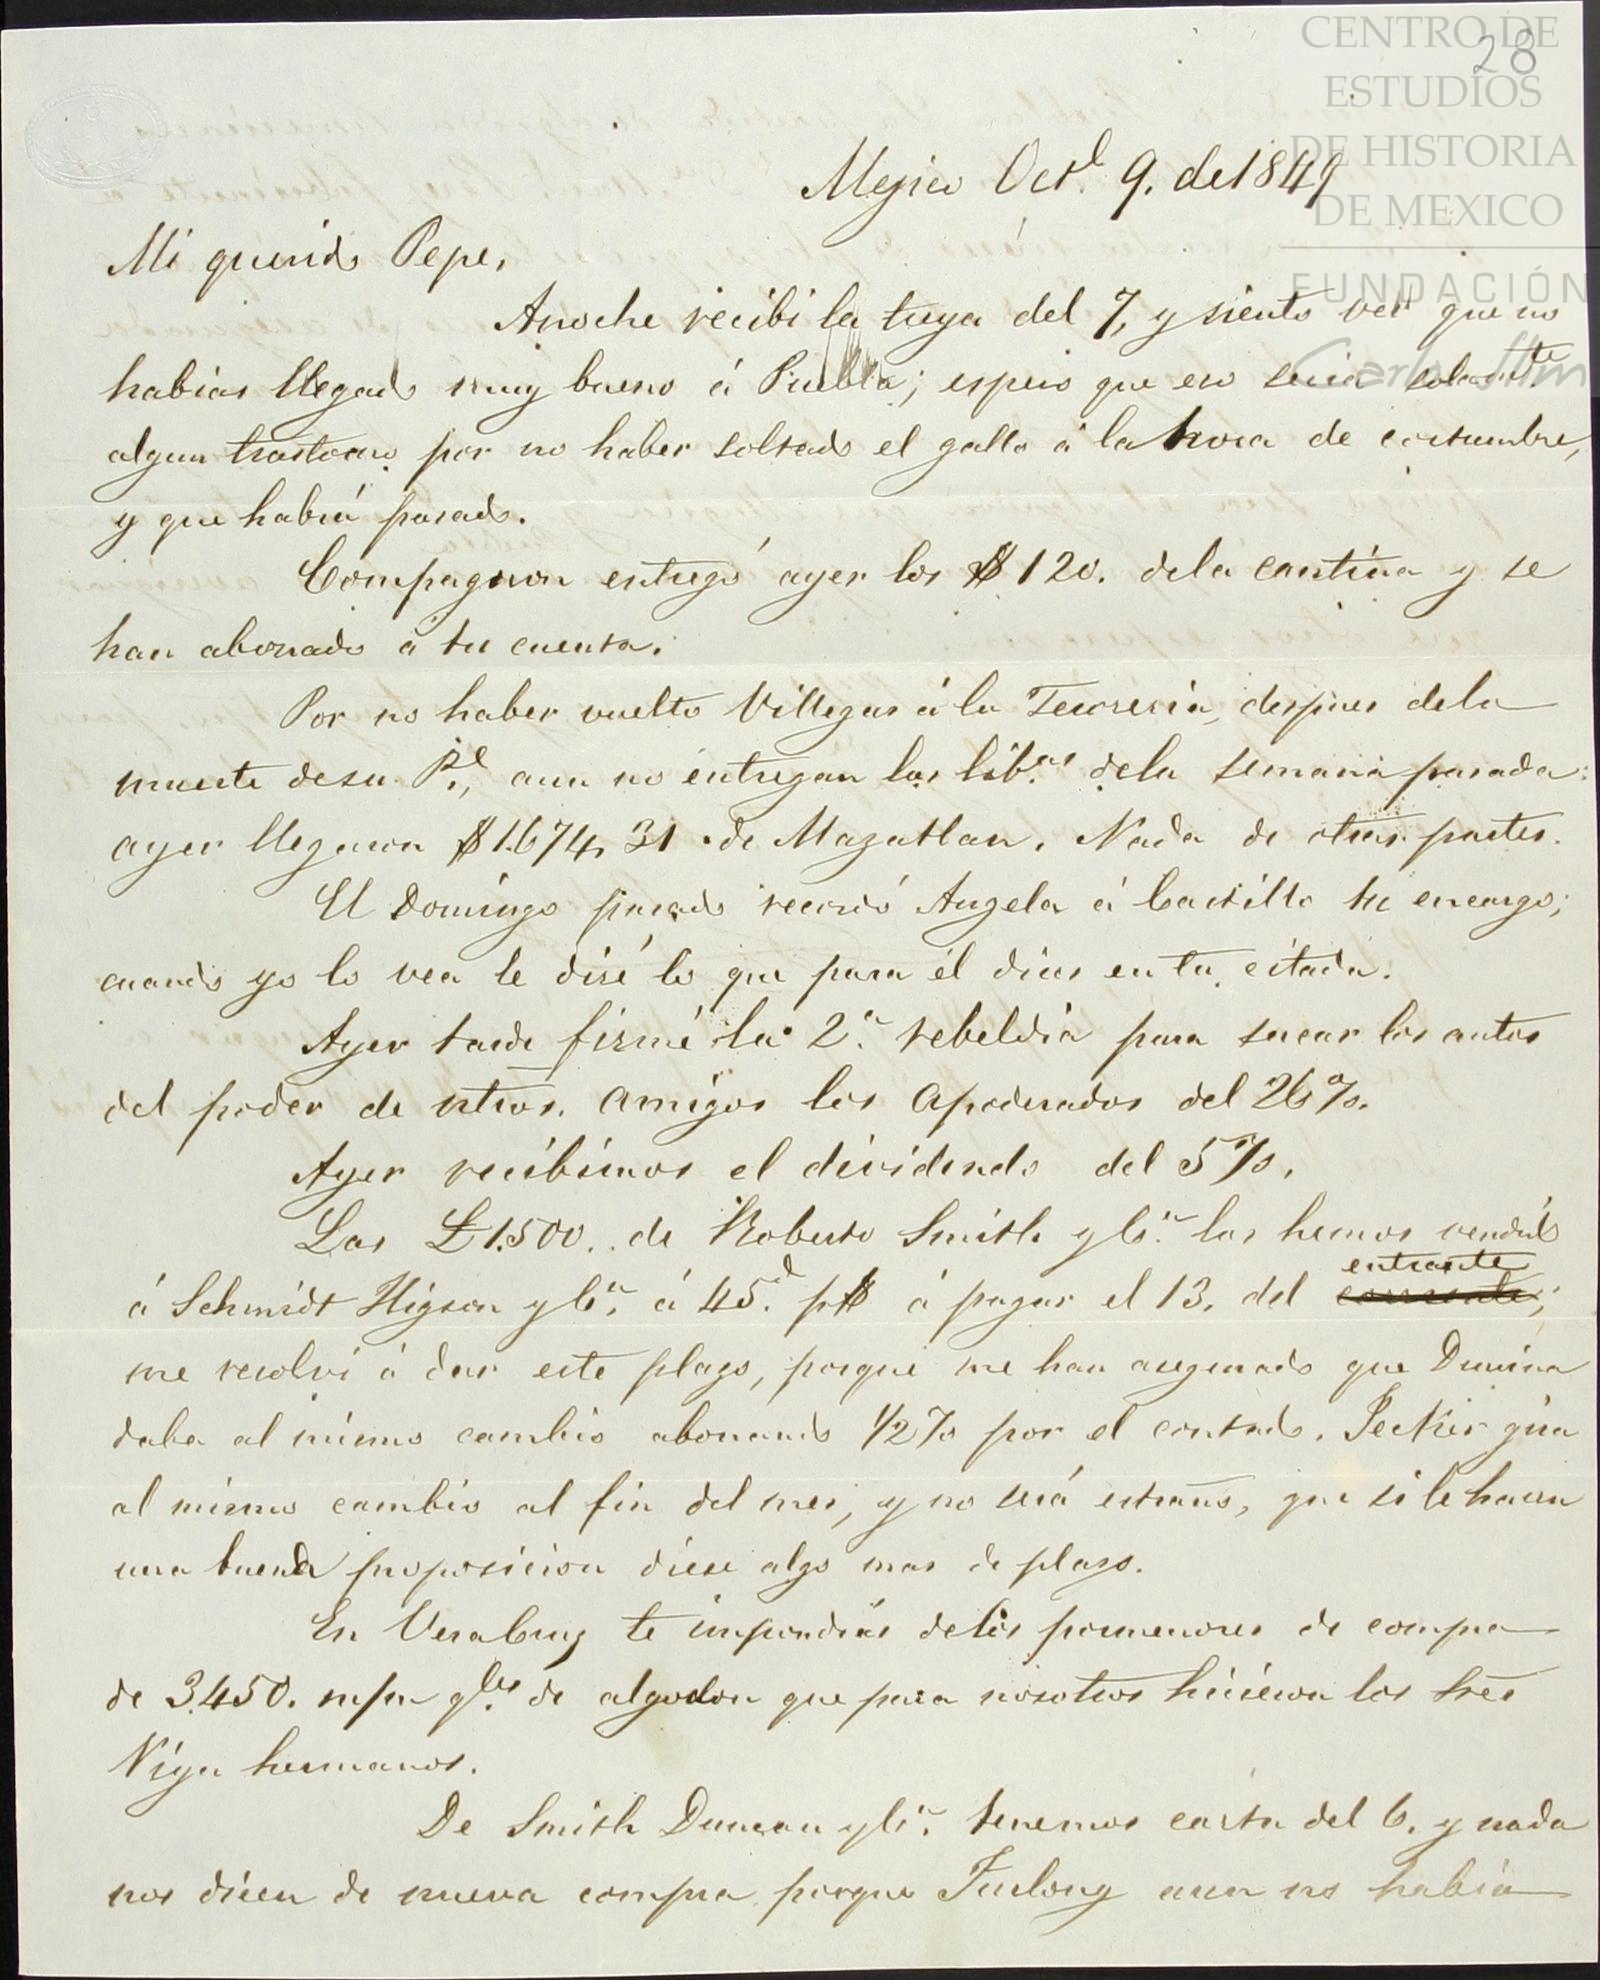 CENTRO DE
ESTUDIOS
DE HISTORIA
DE MEXICO
FUNDACIÓN
28
Mejico Oct.e 9. de 1849
Mi querido Pepe,
Anoche recibi la tuya del 7, y siento ver que no
habias llegado muy bueno á Puebla; espero que eso seria solam.te
algun trastorno por no haber soltado el gallo á la hora de costumbre,
y que habrá pasado.
Compagnon entregó ayer los $120. dela cantina y se
han abonado á tu cuenta.
Por no haber vuelto Villegas á la Tesoreria, despues dela
muerte desu P.e, aun no entregan las lib.as dela semana pasada:
ayer llegaron $1.674,31 de Mazatlan. Nada de otras partes.
El Domingo pasado recordó Angela á Castillo tu encargo;
cuando yo lo vea le diré lo que para él dices en tu citada.
Ayer tarde firmé la 2.a rebeldia para sacar los autos
del poder de ntros. amigos los apoderados del 26%.
Ayer recibimos el dividendo del 5%.
Las £1.500. de Roberto Smith y C.a las hemos vendido
á Schmidt Higson y C.a á 45.d p$ á pagar el 13. del corriente entrante;
me resolvi á dar este plazo, porque me han asegurado que
daba al mismo cambio abonando 1/2% por el contado. Jecker gira
al mismo cambio al fin del mes, y no será estraño, que si le hacen
una buena proposicion diese algo mas de plazo.
En VeraCruz te impondrás delos pormenores de compra
de 3.450. m/m q.les de algodon que para nosotros hicieron los tres
Viya hermanos.
De Smith Duncan y C.a tenemos carta del 6. y nada
nos dicen de nueva compra porque Furlong aun no habia